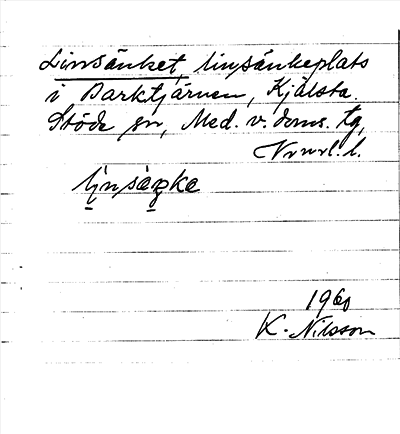 Linsänket, linsänkeplats
i Barktjärnen, Kjälsta.
Stöde sn, Med. v. doms. tg,
Vrnrl. l.
1960
K. Nilsson